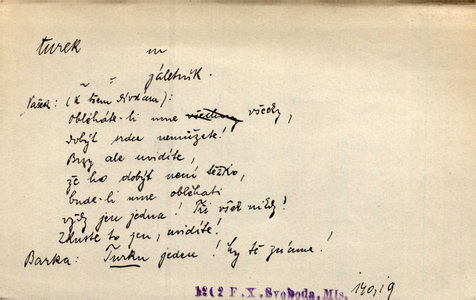 turek
m
záletník.
Vašek: (K třem dívkám):
Obléháte-li mne všechny všecky,
dobýt srdce nemůžete!
Brzy ale uvidíte,
že ho dobýt není těžko,
bude-li mne obléhati
vždy jen jedna! Tři však nikdy!
Zkuste to jen, uvidíte!
Barka: Turku jeden! Ky tě známe!
1262 F. X. Svoboda, Mls.
140,19